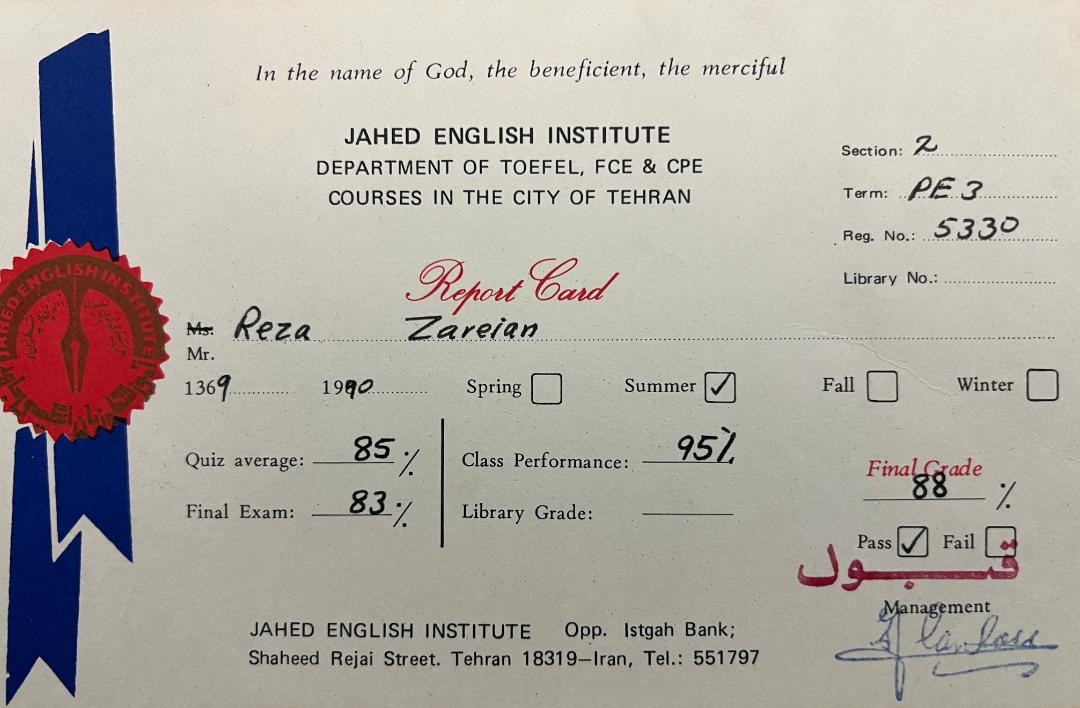 In the name of God, the beneficient, the merciful
JAHED ENGLISH INSTITUTE
DEPARTMENT OF TOEFEL, FCE & CPE
COURSES IN THE CITY OF TEHRAN
Section: 2
Term: PE 3
Reg. No.: 5330
Library No.:
Report Card
JAHED ENGLISH INSTITUTE
Ms. Reza Zareian
Mr.
1369 1990 Spring Summer ✓ Fall Winter
Quiz average: 85 % Class Performance: 95%
Final Exam: 83 % Library Grade:
Final Grade
88 %
Pass ✓ Fail
قبول
Management
JAHED ENGLISH INSTITUTE Opp. Istgah Bank;
Shaheed Rejai Street. Tehran 18319–Iran, Tel.: 551797